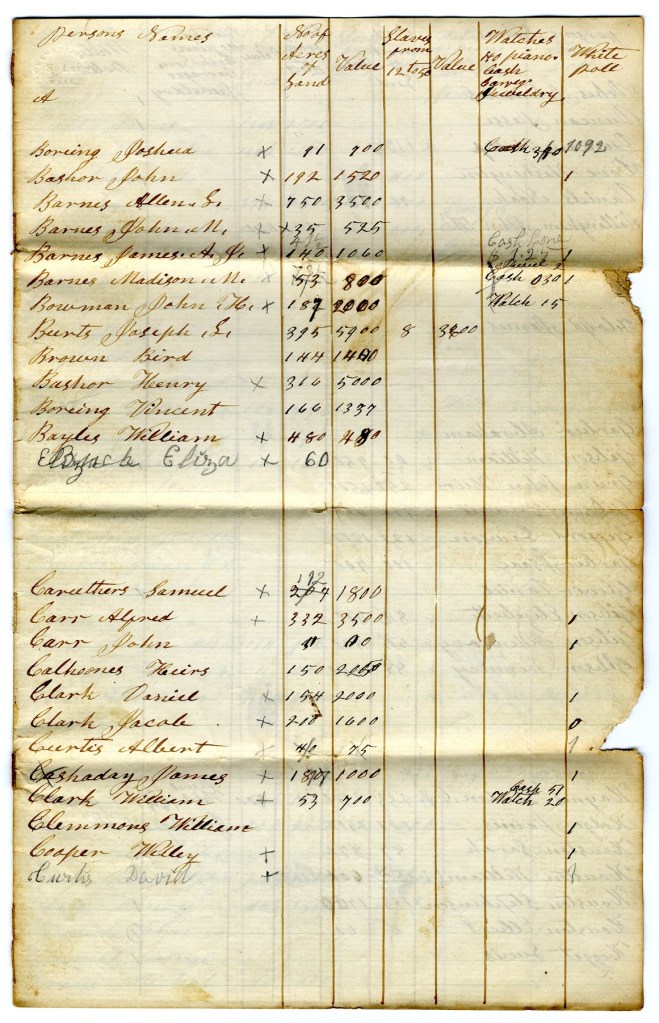 Persons Names No of Acres of Land Value Slaves from 12 to 50 Value Watches Ho pianos Cash Carvgs Jeweldry White poll
A
Boreing Joshua x 91 900 Cash
Bashor John x 192 1520 1
Barnes Allen S. x 750 3500
Barnes John M. x 35 525
Barnes James A. J. x 140 1060 1
Barnes Madison M. x 53 800 Cash 1
Bowman John H. x 187 2000 Watch 15
Burts Joseph S. 395 5900 8
Brown Bird 144
Bashor Henry x 316 5000
Boreing Vincent 166 1337
Bayles William x 480
Eliza x 60
192
Caruthers Samuel x 1800
Carr Alfred x 332 3500 1
Carr John 1
Calhoones Heirs 150
Clark Daniel x 154 2000 1
Clark Jacob x 210 1600 0
Curtis Albert x 40 75 1
Cashaday James x 1000 1
Cash 51
Clark William + 53 700 Watch 20
Clemmons William 1
Cooper Willey + 1
Curtis David +